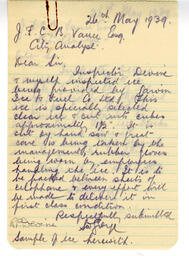 26th May 1939.
J. F. C. B. Vance Esq.
City Analyst.
Dear Sir,
Inspector Devine
& myself inspected ice
being provided by
Ice & Fuel Co Ltd. This
ice is specially selected
clear ice & cut into cubes
approximately 1½". It is
cut by hand saw & great
care is being taken by the
management, rubber gloves
being worn by employees
handling the ice. It is to
be packed between sheets of
cellophane & every effort will
be made to deliver it in
first class condition.
Respectfully submitted
Sample of ice herewith.